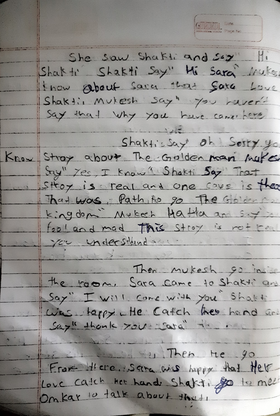 She saw Shakti and say " Hi
Shakti Shakti Say" Hi Sara" Mukesh
know about Sara that Sara Love
Shakti. Mukesh Say" you haven't
Say that why you have come here
Shakti Say" Oh Sorry
Know Stroy about The Golden man Mukesh
Say" yes I know". Shakti Say That
Stroy is real and one cave is there
That was Path to go The Golden
kingdom" Mukesh and Say
fool and mad This Stroy is not real
you understand
Then mukesh go in
the room, Sara came to Shakti and
Say" I will come with you Shakti
was happy. He catch her hand and
Say" thank you Sara"
Then He go
From there. Sara was happy that Her
Love catch her hand. Shakti go to meet
Omkar to talk about that.